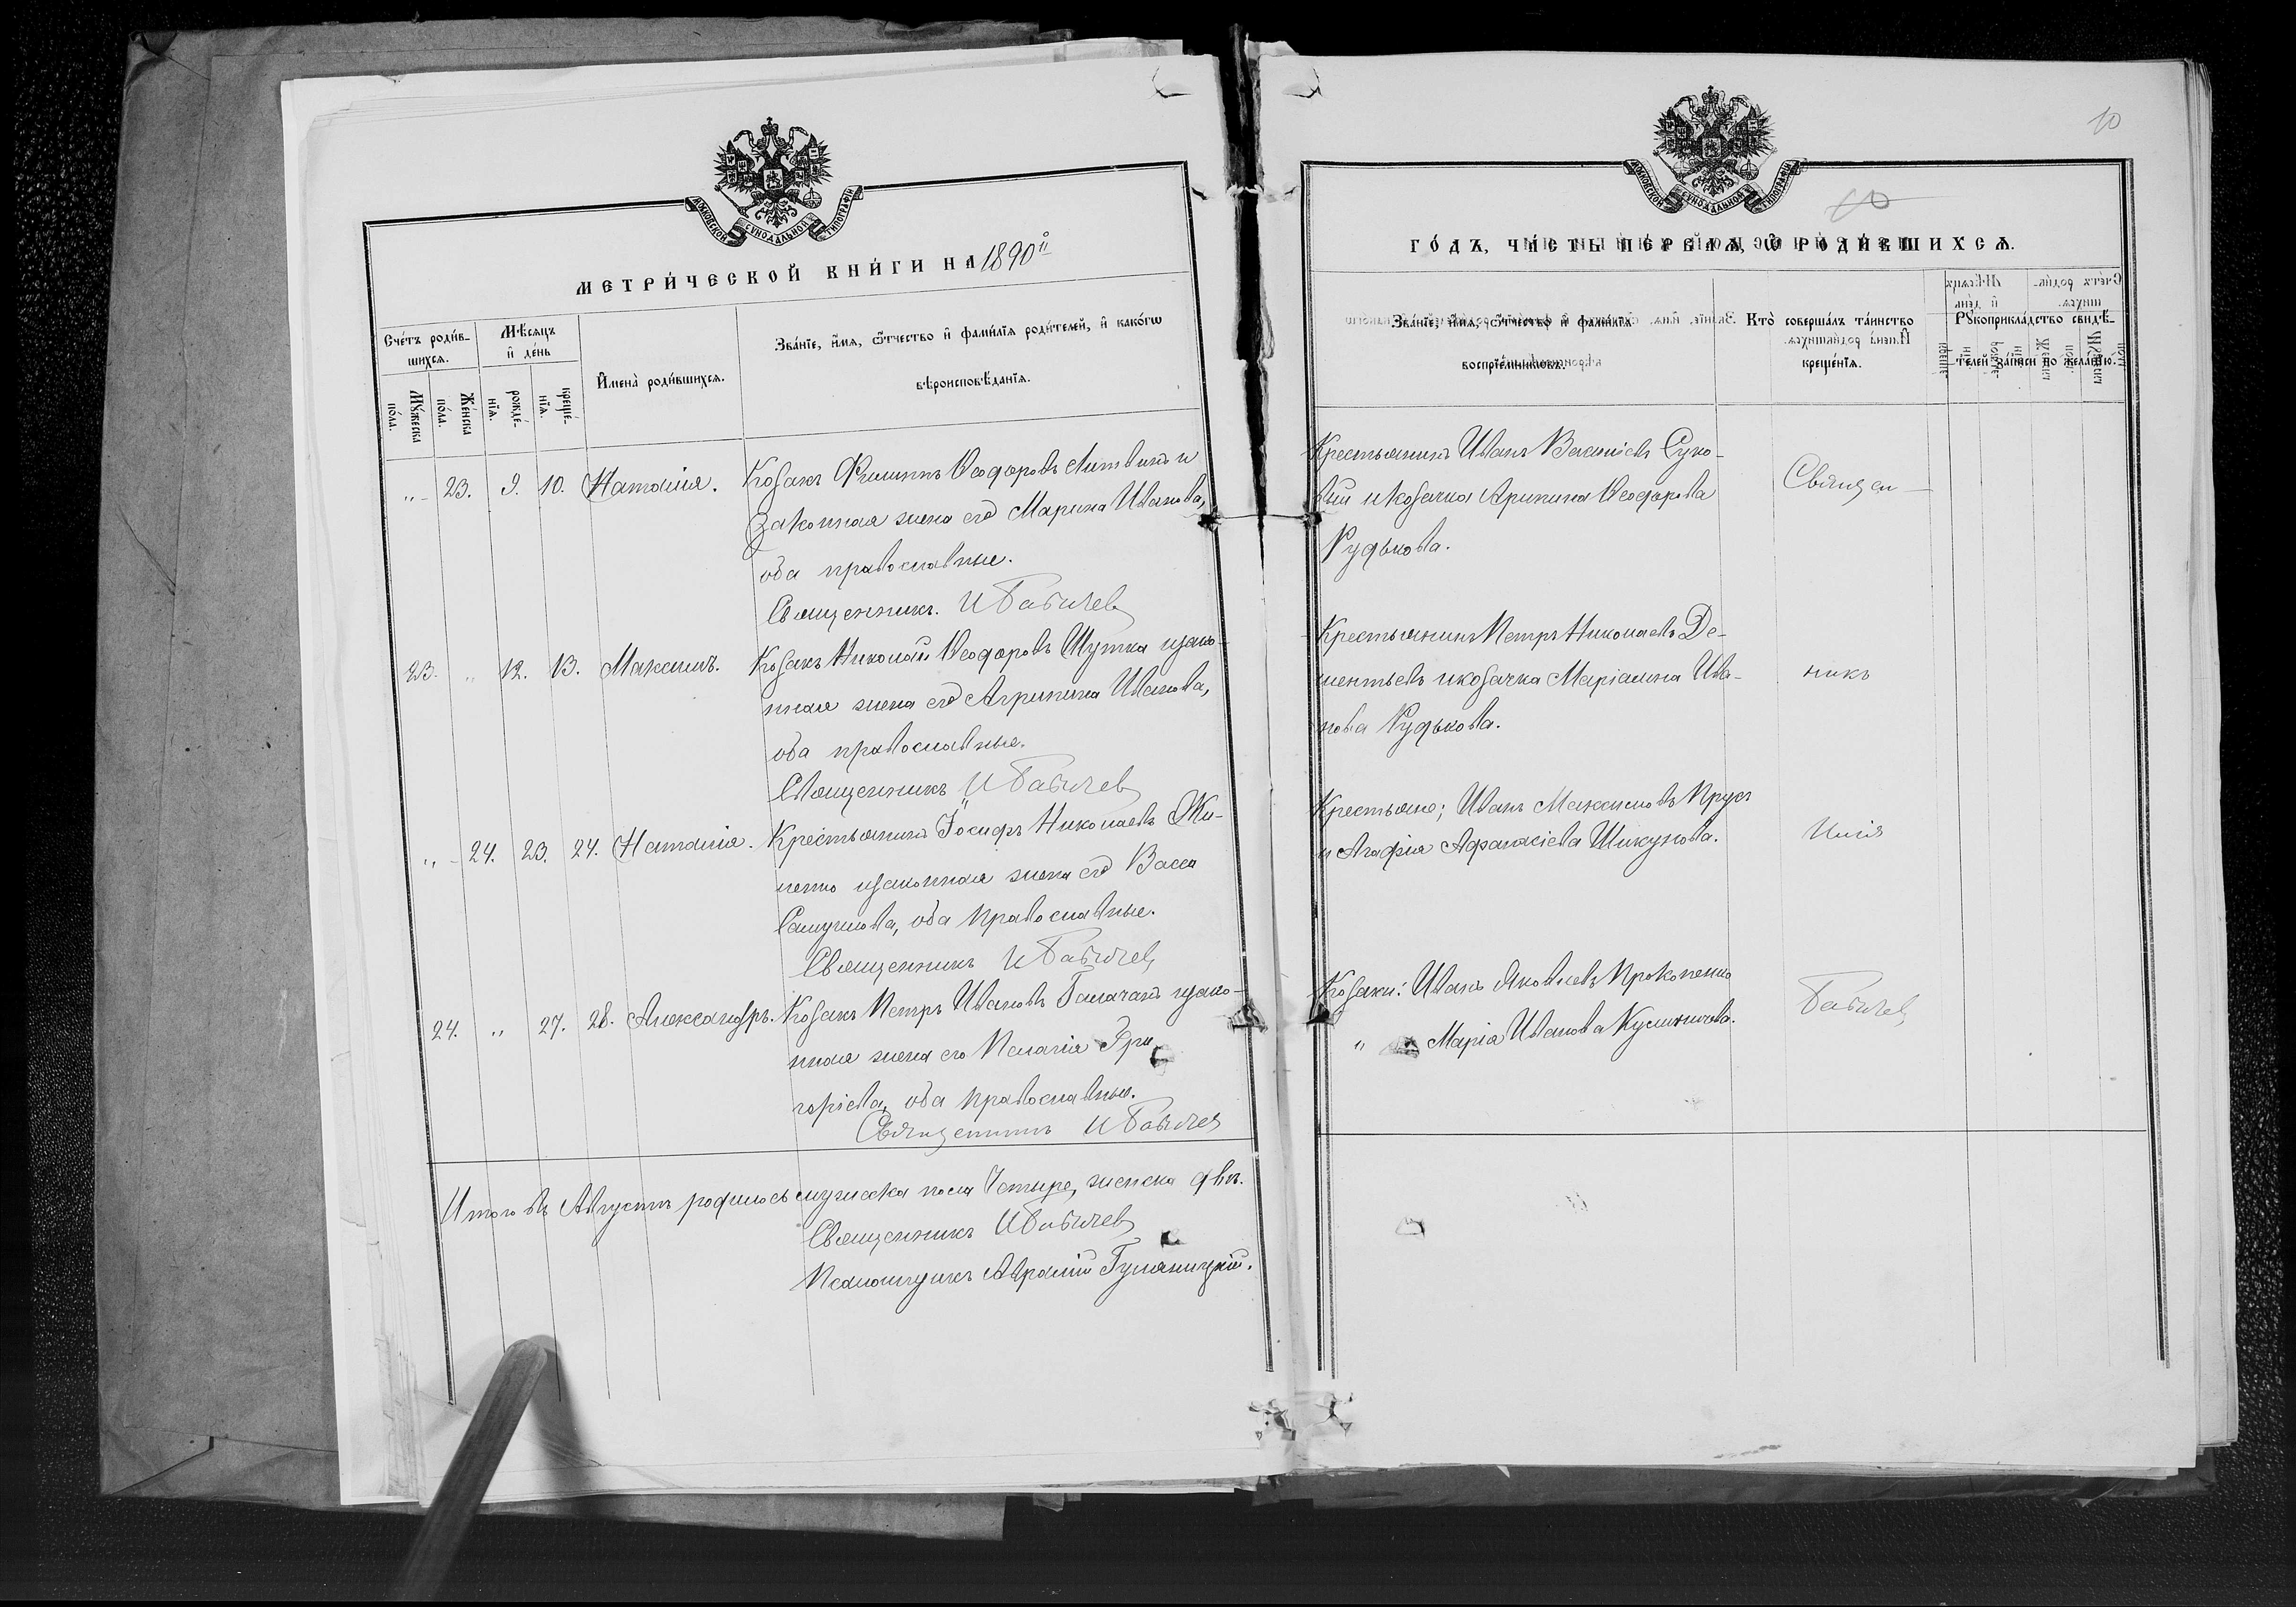 МОСКОВСКОЙ СѴНОДАЛЬНОЙ ТИПОГРАФІИ
МЕТРИ́ЧЕСКОЙ КНИ́ГИ НА 1890й
Сче́тъ роди́в-
шихсѧ.
Мѣ́сѧцъ
и҆ де́нь
И҆мена̀ роди́вшихсѧ.
Зва́нїе, и҆́мѧ, ѻ҆́тчество и҆ фами́лїѧ роди́телей, и҆ како́гѡ
вѣроисповѣ́данїѧ.
Мꙋ́жеска
по́ла.
Же́нска
по́ла.
рожде́-
нїѧ.
креще́-
нїѧ.
„ 23. 9. 10. Наталія. Козакъ Филиппъ Ѳеодоровъ Литвинъ и
законная жена его Марина Иванова,
оба православные.
Священникъ. И Бабичев
23. „ 12. 13. Максимъ. Козакъ Николай Ѳеодоровъ Шутка изако-
нная жена его Агрипина Иванова,
оба православные.
Священникъ И Бабичев
„ 24. 23. 24. Наталія. Крестьянинъ Іосифъ Николаевъ Жи-
изаконная жена его Васса
Самуилова, оба православные.
Священникъ И Бабичев
24. „ 27. 28. Александръ. Козакъ Петръ Ивановъ Галаганъ изако-
нная жена его Пелагія Гри-
горіева, оба православные.
Священникъ И Бабичев
Итого въ Августѣ родилось мужеска пола Четыре, женска двѣ.
Священникъ И Бабичев
Псаломщикъ Авраамій Гуляницкій.
10
МОСКОВСКОЙ СѴНОДАЛЬНОЙ ТИПОГРАФІИ
10
ГО́ДЪ, ЧА́СТЬ ПЕ́РВАѦ, Ѡ҆ РОДИ́ВШИХСѦ.
Зва́нїе, и҆́мѧ, ѻ҆́тчество и҆ фами́лїѧ
воспрїе́мникѡвъ.
Кто̀ соверша́лъ та́инство
креще́нїѧ.
Рꙋкоприкла́дство свидѣ́-
телей за́писи по жела́нїю.
Крестьянинъ Иванъ Василіевъ Суко-
вій и козачка Арипина Ѳеодорова
Рудькова.
Священ-
Крестьянинъ Петръ Николаевъ Де-
ментьевъ и козачка Маріамна Ива-
нова Рудькова.
никъ
Крестьяне; Иванъ Максимовъ Прусъ
и Агафія Афанасіева Шикунова.
Илія
Козаки: Иванъ Яковлевъ Прокопенко
„ Марія Иванова
Бабичев